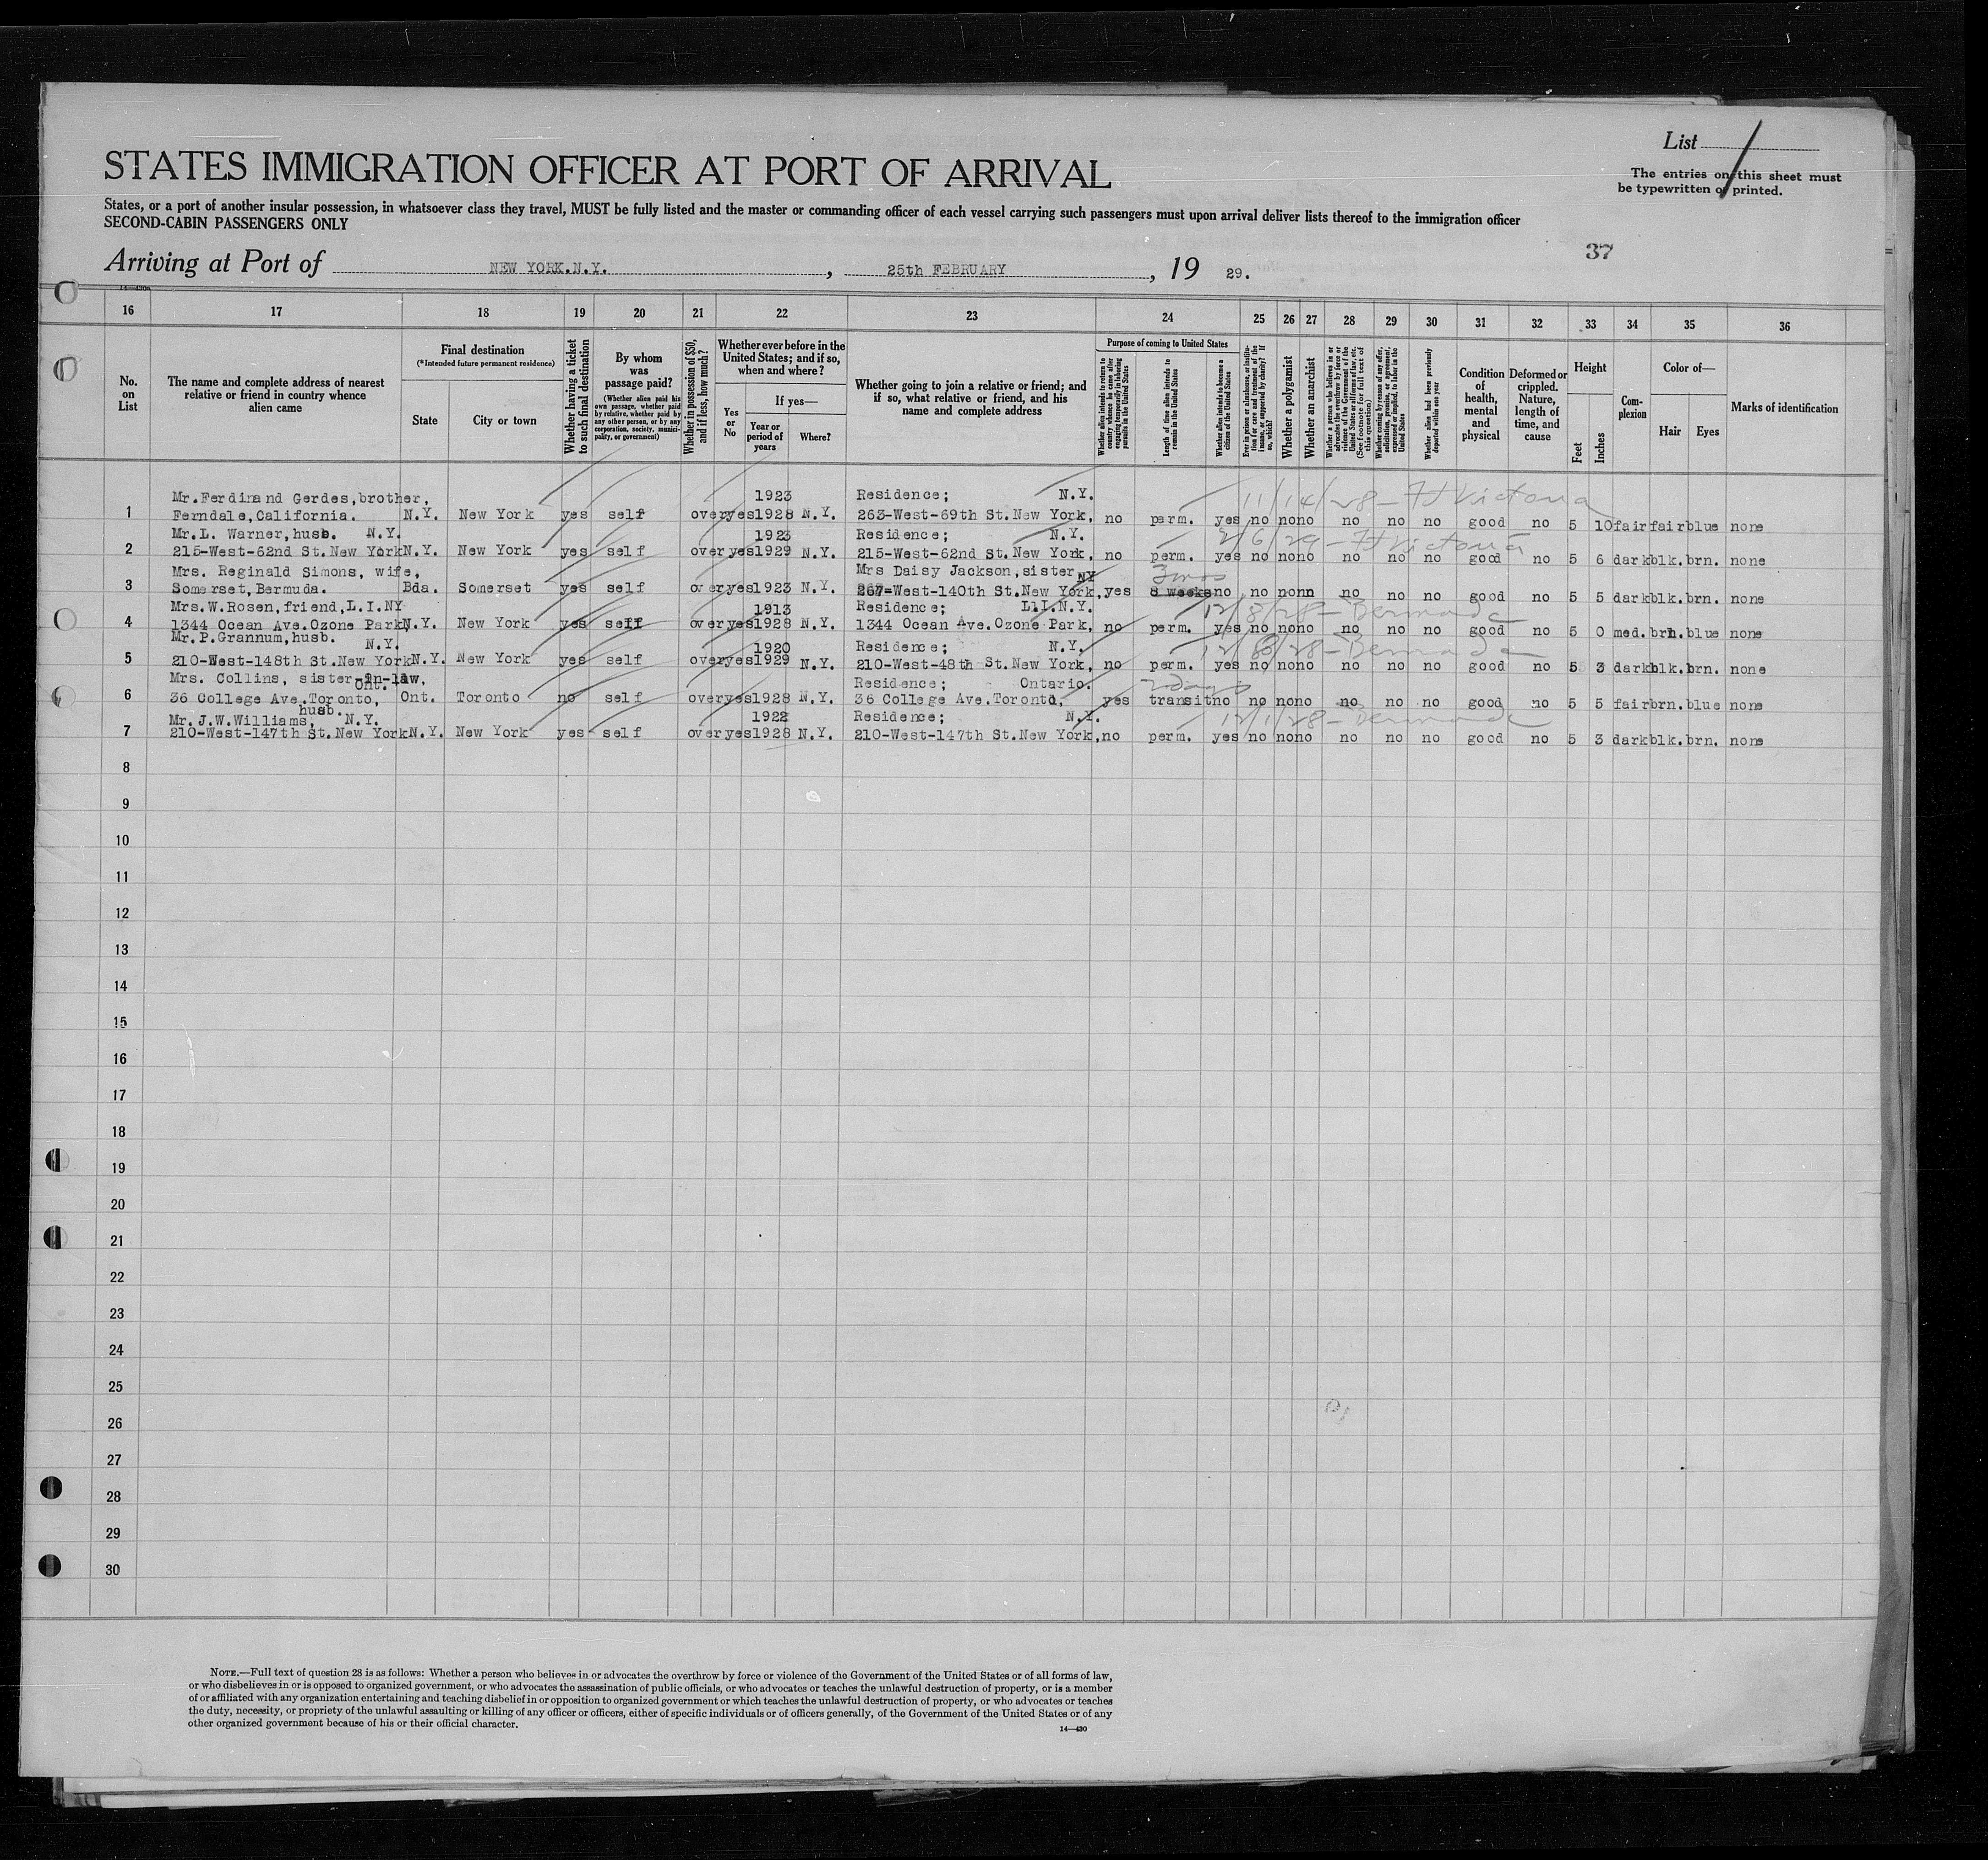 List 1
The entries on this sheet must
be typewritten or printed.
STATES IMMIGRATION OFFICER AT PORT OF ARRIVAL
States, or a port of another insular possession, in whatsoever class they travel, MUST be fully listed and the master or commanding officer of each vessel carrying such passengers must upon arrival deliver lists thereof to the immigration officer
SECOND-CABIN PASSENGERS ONLY
37
Arriving at Port of NEW YORK.N.Y. , 25th FEBRUARY , 19 29.
16 17 18 19 20 21 22 23 24 25 26 27 28 29 30 31 32 33 34 35 36
No. on List
The name and complete address of nearest relative or friend in country whence alien came
Final destination
(*Intended future permanent residence)
State
City or town
Whether having a ticket to such final destination
By whom was passage paid?
(Whether alien paid his own passage, whether paid by relative, whether paid by any other person, or by any corporation, society, municipality, or government)
Whether in possession of $50, and if less, how much?
Whether ever before in the United States; and if so, when and where?
Yes or No
If yes—
Year or period of years
Where?
Whether going to join a relative or friend; and if so, what relative or friend, and his name and complete address
Purpose of coming to United States
Whether alien intends to return to country whence he came after engaging temporarily in laboring pursuits in the United States
Length of time alien intends to remain in the United States
Whether alien intends to become a citizen of the United States
Ever in prison or almshouse, or institution for care and treatment of the insane, or supported by charity? If so, which?
Whether a polygamist
Whether an anarchist
Whether a person who believes in or advocates the overthrow by force or violence of the Government of the United States or all forms of law, etc. (See footnote for full text of this question.)
Whether coming by reason of any offer, solicitation, promise, or agreement, expressed or implied, to labor in the United States
Whether alien had been previously deported within one year
Condition of health, mental and physical
Deformed or crippled. Nature, length of time, and cause
Height
Feet
Inches
Complexion
Color of—
Hair
Eyes
Marks of identification
Mr.Ferdinand Gerdes,brother, 1923 Residence; N.Y. 11/14/28 - Ft Victoria
1 Ferndale,California. N.Y. New York yes self over yes 1928 N.Y. 263-West-69th St.New York, no perm. yes no no no no no no good no 5 10 fair fair blue none
Mr.L. Warner,husb. N.Y. 1923 Residence; N.Y. 2/6/29 - Ft Victoria
2 215-West-62nd St.New York N.Y. New York yes self over yes 1929 N.Y. 215-West-62nd St.New York, no perm. yes no no no no no no good no 5 6 dark blk. brn. none
Mrs. Reginald Simons, wife, Mrs Daisy Jackson,sister NY 3mos
3 Somerset,Bermuda. Bda. Somerset yes self over yes 1923 N.Y. 267-West-140th St.New York, yes 8 weeks no no no nn no no no good no 5 5 dark blk. brn. none
Mrs.W.Rosen,friend,L.I.NY 1913 Residence; L.I.N.Y. 12/8/28 - Bermuda
4 1344 Ocean Ave.Ozone Park, N.Y. New York yes self over yes 1928 N.Y. 1344 Ocean Ave.Ozone Park, no perm. yes no no no no no no good no 5 0 med. brn. blue none
Mr.P.Grannum,husb. N.Y. 1920 Residence; N.Y. Bermuda
5 210-West-148th St.New York N.Y. New York yes self over yes 1929 N.Y. 210-West-48th St.New York, no perm. yes no no no no no no good no 5 3 dark blk. brn. none
Mrs. Collins, sister-in-law, Ont. Residence; Ontario. 2 days
6 36 College Ave.Toronto, Ont. Toronto no self over yes 1928 N.Y. 36 College Ave.Toronto, yes transit no no no no no no no good no 5 5 fair brn. blue none
Mr. J.W.Williams, husb. N.Y. 1922 Residence; N.Y. 12/1/28 - Bermuda
7 210-West-147th St.New York N.Y. New York yes self over yes 1928 N.Y. 210-West-147th St.New York, no perm. yes no no no no no no good no 5 3 dark blk. brn. none
8
9
10
11
12
13
14
15
16
17
18
19
20
21
22
23
24
25
26
27
28
29
30
NOTE.—Full text of question 28 is as follows: Whether a person who believes in or advocates the overthrow by force or violence of the Government of the United States or of all forms of law,
or who disbelieves in or is opposed to organized government, or who advocates the assassination of public officials, or who advocates or teaches the unlawful destruction of property, or is a member
of or affiliated with any organization entertaining and teaching disbelief in or opposition to organized government or which teaches the unlawful destruction of property, or who advocates or teaches
the duty, necessity, or propriety of the unlawful assaulting or killing of any officer or officers, either of specific individuals or of officers generally, of the Government of the United States or of any
other organized government because of his or their official character.
14—430